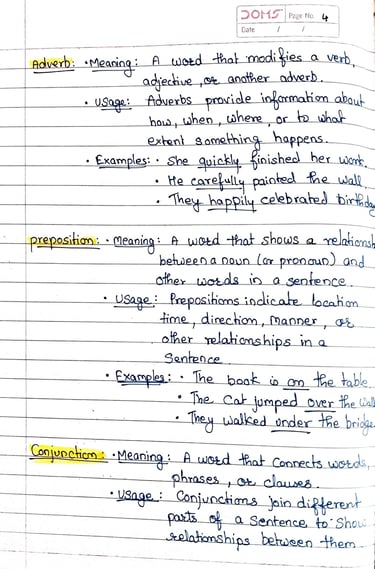 DOMS Page No. 4
Date / /
Adverb: • Meaning: A word that modifies a verb,
adjective, or another adverb.
• Usage: Adverbs provide information about
how, when, where, or to what
extent something happens.
• Examples: • She quickly finished her work.
• He carefully painted the wall.
• They happily celebrated birthday
preposition: • Meaning: A word that shows a relations
between a noun (or pronoun) and
other words in a sentence.
• Usage: Prepositions indicate location
time, direction, manner, or
other relationships in a
Sentence.
• Examples: • The book is on the table.
• The Cat jumped over the wall
• They walked under the bridge
Conjunction: • Meaning: A word that connects words,
phrases, or clauses.
• Usage: Conjunctions join different
parts of a sentence to show
relationships between them.